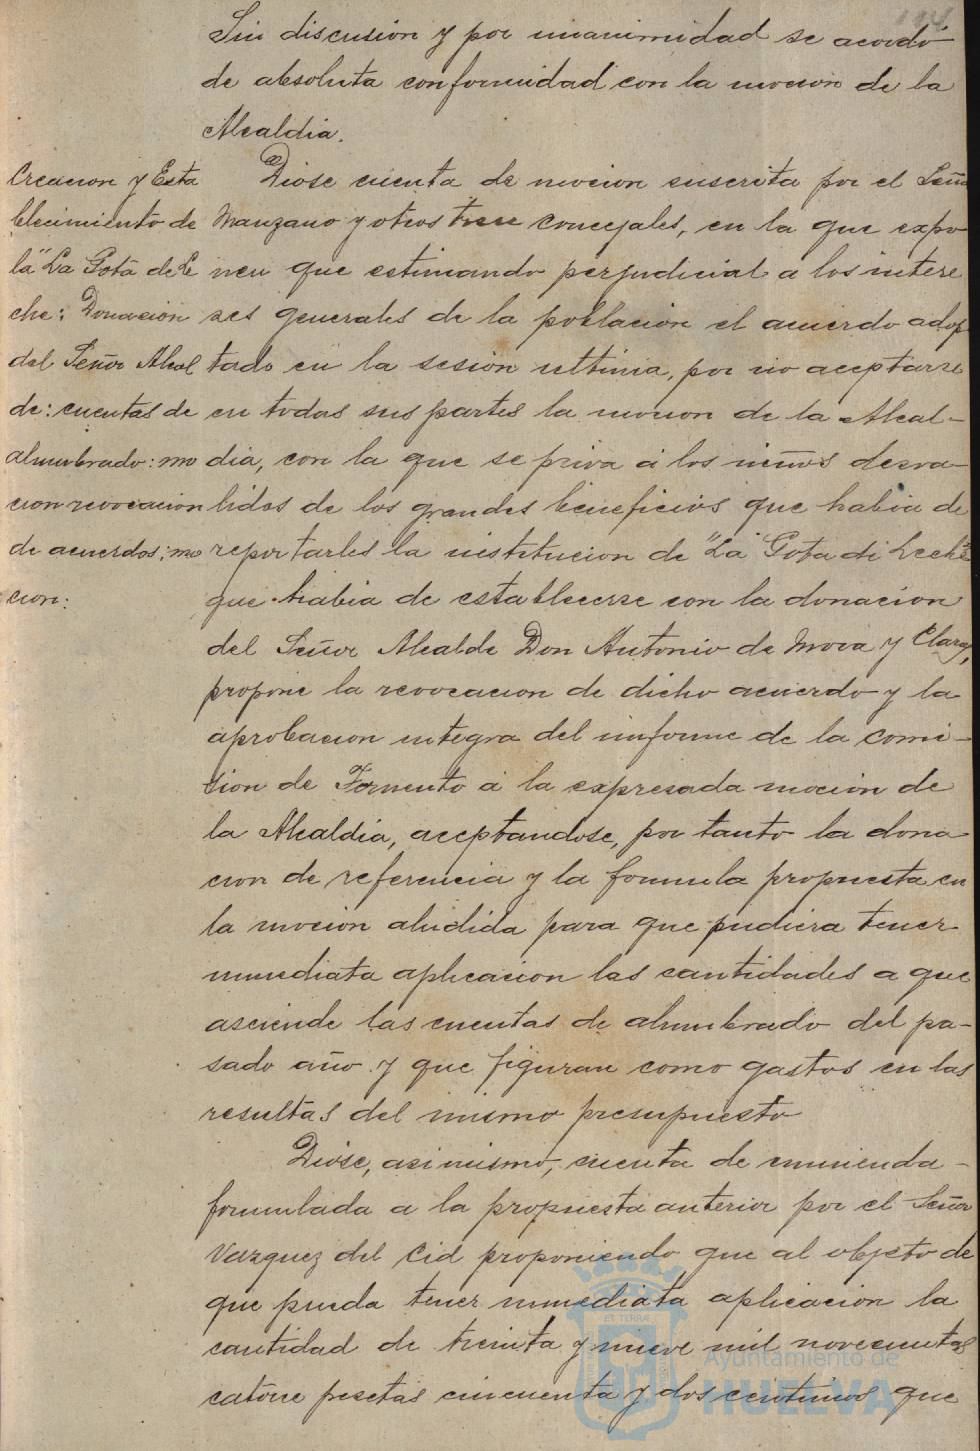 Sin discusión y por unanimidad se acordó
de absoluta conformidad con la mocion de la
Alcaldia.
Creacion y Esta
blecimiento de
la "La Gota de Le
che: Donación
del Señor Alcal
de: cuentas de
alumbrado: mo
cion revocacion
de acuerdos: mo
cion:
Diose cuenta de mocion suscrita por el Señor
Manzano y otros trece concejales, en la que expo-
nen que estimando perjudicial a los intere
ses generales de la población el acuerdo adop
tado en la sesión ultima, por no aceptarse
en todas sus partes la mocion de la Alcal-
dia, con la que se priva á los niños desva-
lidos de los grandes beneficios que habia de
reportarles la institucion de "La Gota de Leche"
que habia de establecerse con la donacion
del Señor Alcalde Don Antonio de Mora y Claros,
propone la revocacion de dicho acuerdo y la
aprobacion integra del informe de la comi-
sion de Fomento á la expresada mocion de
la Alcaldia, aceptandose, por tanto la dona
cion de referencia y la formula propuesta en
la mocion aludida para que pudiera tener
inmediata aplicacion las cantidades a que
asciende las cuentas de alumbrado del pa-
sado año y que figuran como gastos en las
resultas del mismo presupuesto
Diose, asimismo, cuenta de enmienda-
formulada a la propuesta anterior por el Señor
Vazquez del Cid proponiendo que al objeto de
que pueda tener inmediata aplicacion la
cantidad de treinta y nueve mil novecientas
catorce pesetas cincuenta y dos centimos que
Ayuntamiento de
HUELVA